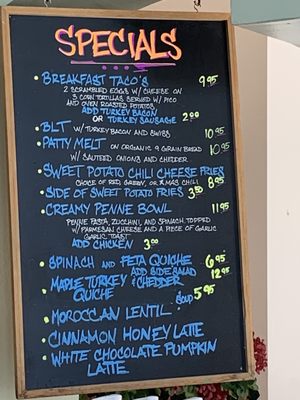 SPECIALS
BREAKFAST TACO'S 9.95
2 SCRAMBLED EGGS W/ CHEESE ON
3 CORN TORTILLAS, SERVED W/ PICO
AND OVEN ROASTED POTATOES,
ADD TURKEY BACON
OR TURKEY SAUSAGE 2.00
BLT W/ TURKEY BACON AND SWISS 10.95
PATTY MELT ON ORGANIC 9 GRAIN BREAD 10.95
W/ SAUTEED ONIONS AND CHEDDER
SWEET POTATO CHILI CHEESE FRIES
CHOICE OF RED, GREEN, OR XMAS CHILI 8.95
SIDE OF SWEET POTATO FRIES 3.50
CREAMY PENNE BOWL 11.95
PENNE PASTA, ZUCCHINI, AND SPINACH, TOPPED
W/ PARMESAN CHEESE AND A PIECE OF GARLIC
GARLIC TOAST
ADD CHICKEN 3.00
SPINACH AND FETA QUICHE 6.95
ADD SIDE SALAD 12.95
MAPLE TURKEY & CHEDDER
QUICHE
SOUP 5.95
MOROCCAN LENTIL
CINNAMON HONEY LATTE
WHITE CHOCOLATE PUMPKIN
LATTE